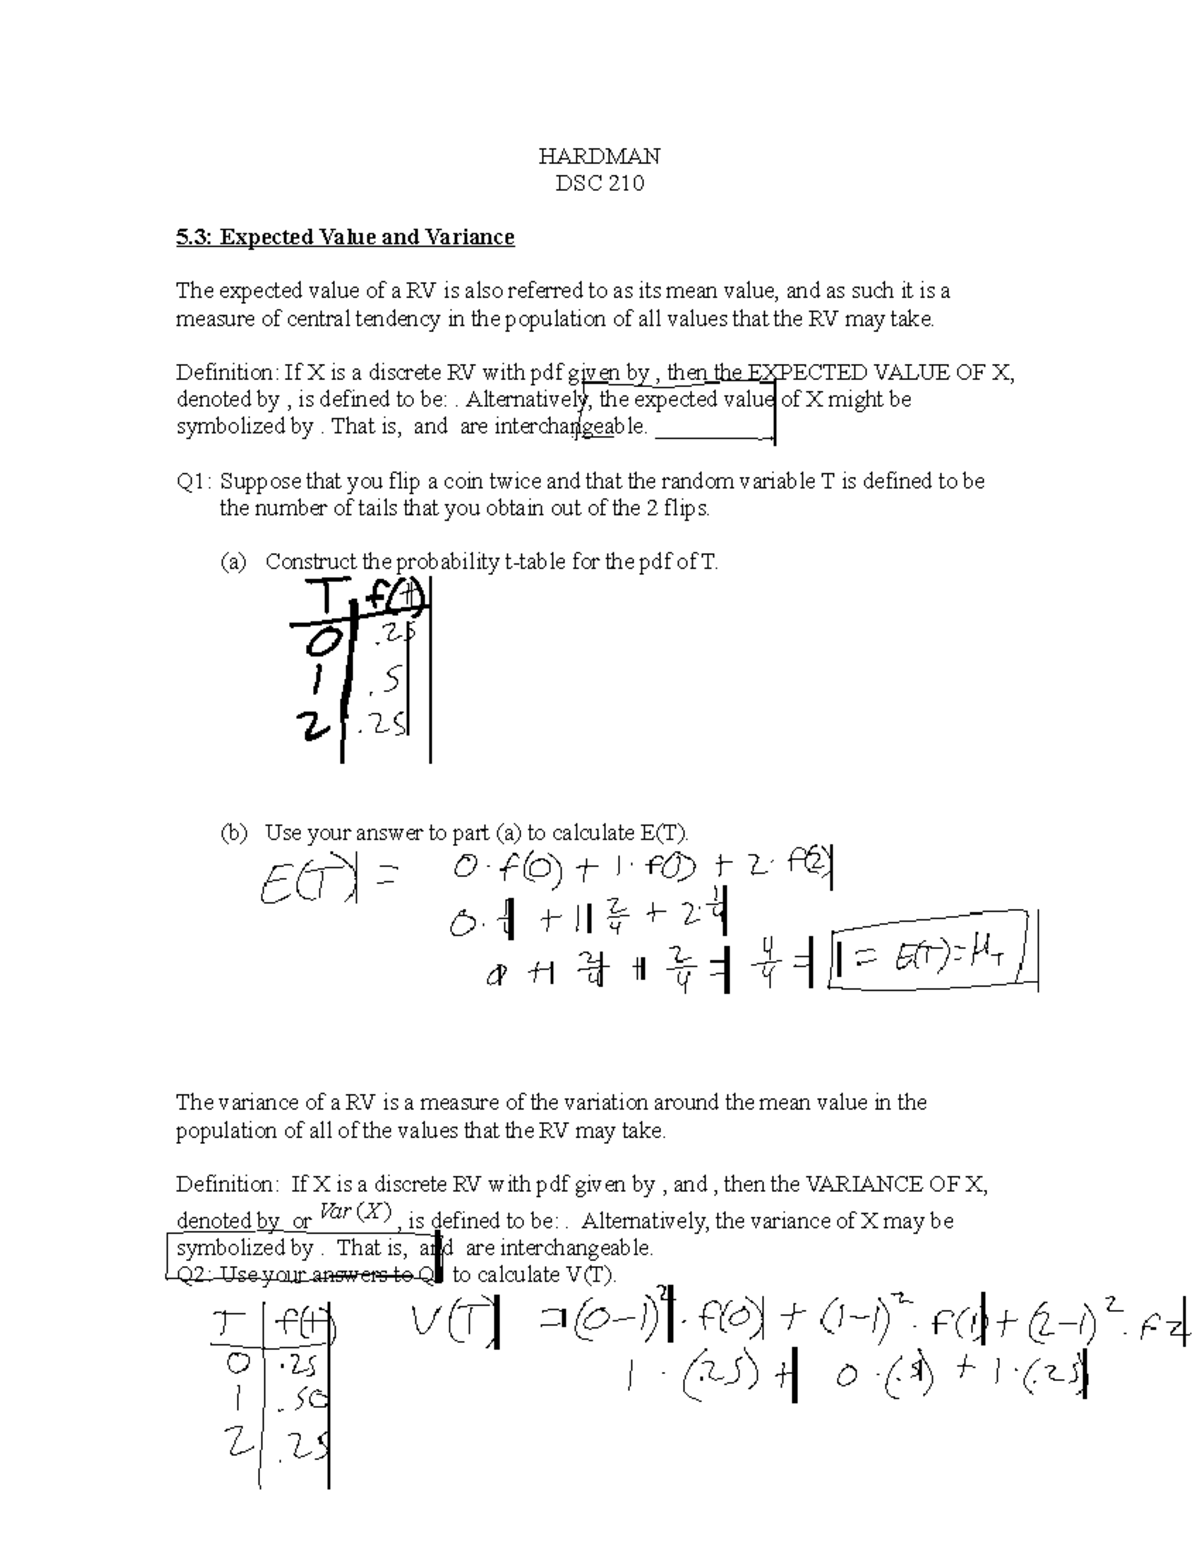 HARDMAN
DSC 210
5.3: Expected Value and Variance
The expected value of a RV is also referred to as its mean value, and as such it is a
measure of central tendency in the population of all values that the RV may take.
Definition: If X is a discrete RV with pdf given by , then the EXPECTED VALUE OF X,
denoted by , is defined to be: . Alternatively, the expected value of X might be
symbolized by . That is, and are interchangeable.
Q1: Suppose that you flip a coin twice and that the random variable T is defined to be
the number of tails that you obtain out of the 2 flips.
(a) Construct the probability t-table for the pdf of T.
T f(t)
0 .25
1 .5
2 .25
(b) Use your answer to part (a) to calculate E(T).
E(T) = 0·f(0) + 1·f(1) + 2·f(2)
0·1/4 + 1 2/4 + 2·1/4
0 + 2/4 + 2/4 = 4/4 = 1 = E(T) = μT
The variance of a RV is a measure of the variation around the mean value in the
population of all of the values that the RV may take.
Definition: If X is a discrete RV with pdf given by , and , then the VARIANCE OF X,
denoted by or Var (X) , is defined to be: . Alternatively, the variance of X may be
symbolized by . That is, and are interchangeable.
Q2: Use your answers to Q1 to calculate V(T).
T f(t) V(T) = (0-1)²·f(0) + (1-1)²·f(1) + (2-1)²·f2
0 .25 1·(.25) + 0·(.5) + 1·(.25)
1 .50
2 .25